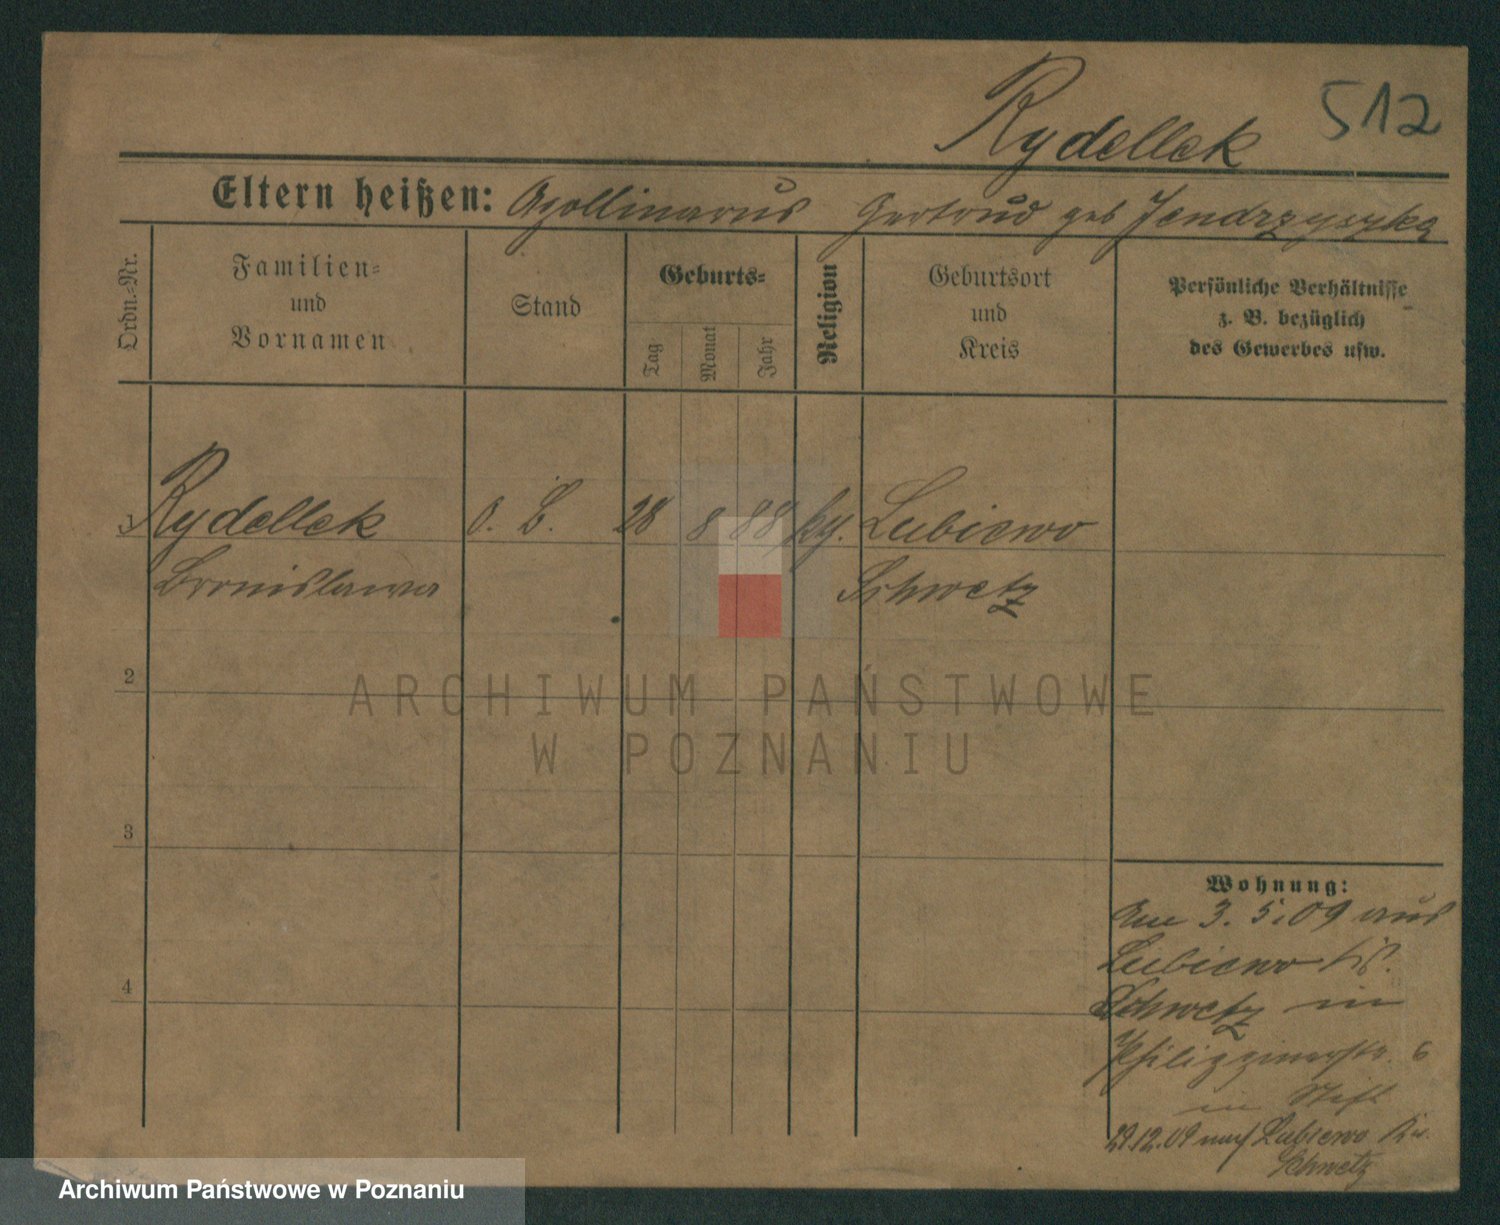 Rydellek 512
Eltern heißen: Apollinarus Gertrud geb Jendrzyczka
Ordn.-Nr.
Familien-
und
Vornamen
Stand
Geburts-
Tag
Monat
Jahr
Religion
Geburtsort
und
Kreis
Persönliche Verhältnisse
z. B. bezüglich
des Gewerbes usw.
Rydellek
Bronislawa
28 8 88
Lubiewo
Schwetz
2
3
4
Wohnung:
Am 3. 5. 09 aus
Lubiewo
Schwetz in
Philippinerstr. 6
in Stift
29.12.09 nach Lubiewo Kr.
Schwetz
ARCHIWUM PAŃSTWOWE
W POZNANIU
Archiwum Państwowe w Poznaniu